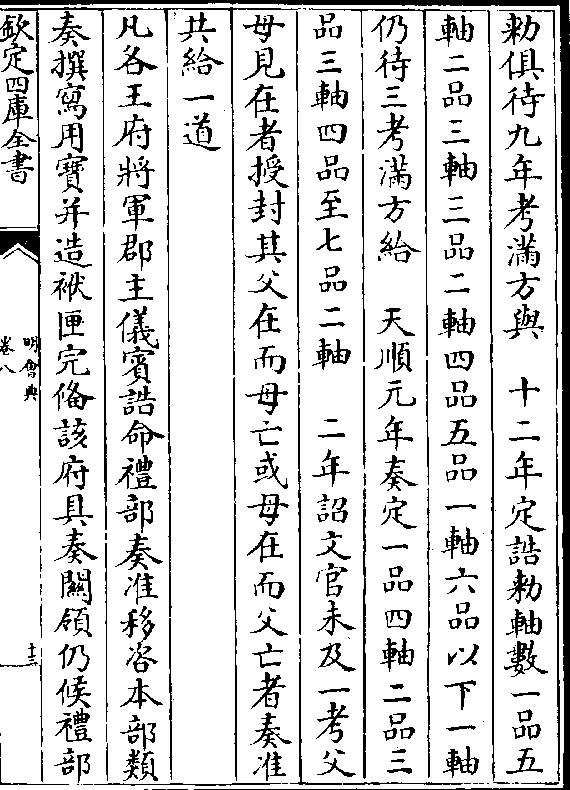 勅俱待九年考滿方與　十二年定誥勅軸數一品五
軸二品三軸三品二軸四品五品一軸六品以下一軸
仍待三考滿方給　天順元年奏定一品四軸二品三
品三軸四品至七品二軸　二年詔文官未及一考父
母見在者授封其父在而母亡或母在而父亡者奏准
共給一道
凡各王府將軍郡主儀賓誥命禮部奏准移咨本部類
奏撰寫用寶并造袱匣完備該府具奏關領仍候禮部
欽定四庫全書
明會典
卷八
十三